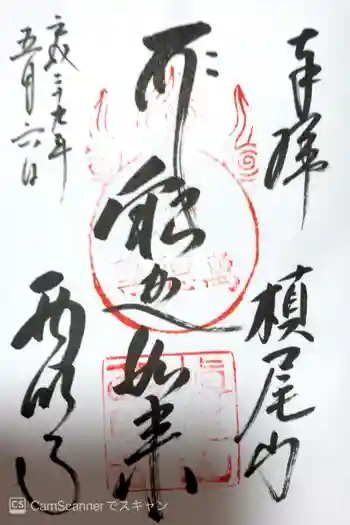 奉拝
槇尾山
釈迦如来
西明寺
平成二十九年
五月六日
CS CamScannerでスキャン